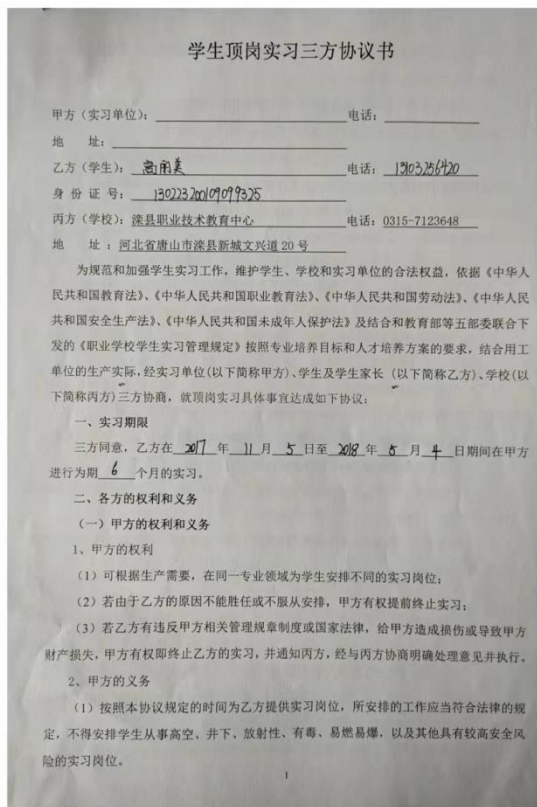 学生顶岗实习三方协议书
甲方（实习单位）：电话：
地 址：
乙方（学生）：电话：13103256420
身 份 证 号：130223200109099325
丙方（学校）：滦县职业技术教育中心 电话：0315-7123648
地 址 ：河北省唐山市滦县新城文兴道 20 号
为规范和加强学生实习工作，维护学生、学校和实习单位的合法权益，依据《中华人
民共和国教育法》、《中华人民共和国职业教育法》、《中华人民共和国劳动法》、《中华人民
共和国安全生产法》、《中华人民共和国未成年人保护法》及结合和教育部等五部委联合下
发的《职业学校学生实习管理规定》按照专业培养目标和人才培养方案的要求，结合用工
单位的生产实际，经实习单位（以下简称甲方）、学生及学生家长（以下简称乙方）、学校（以
下简称丙方）三方协商，就顶岗实习具体事宜达成如下协议：
一、实习期限
三方同意，乙方在 2017 年 11 月 5 日至 2018 年 5 月 4 日期间在甲方
进行为期 6 个月的实习。
二、各方的权利和义务
（一）甲方的权利和义务
1、甲方的权利
（1）可根据生产需要，在同一专业领域为学生安排不同的实习岗位；
（2）若由于乙方的原因不能胜任或不服从安排，甲方有权提前终止实习；
（3）若乙方有违反甲方相关管理规章制度或国家法律，给甲方造成损伤或导致甲方
财产损失，甲方有权即终止乙方的实习，并通知丙方，经与丙方协商明确处理意见并执行。
2、甲方的义务
（1）按照本协议规定的时间为乙方提供实习岗位，所安排的工作应当符合法律的规
定，不得安排学生从事高空、井下、放射性、有毒、易燃易爆，以及其他具有较高安全风
险的实习岗位。
1